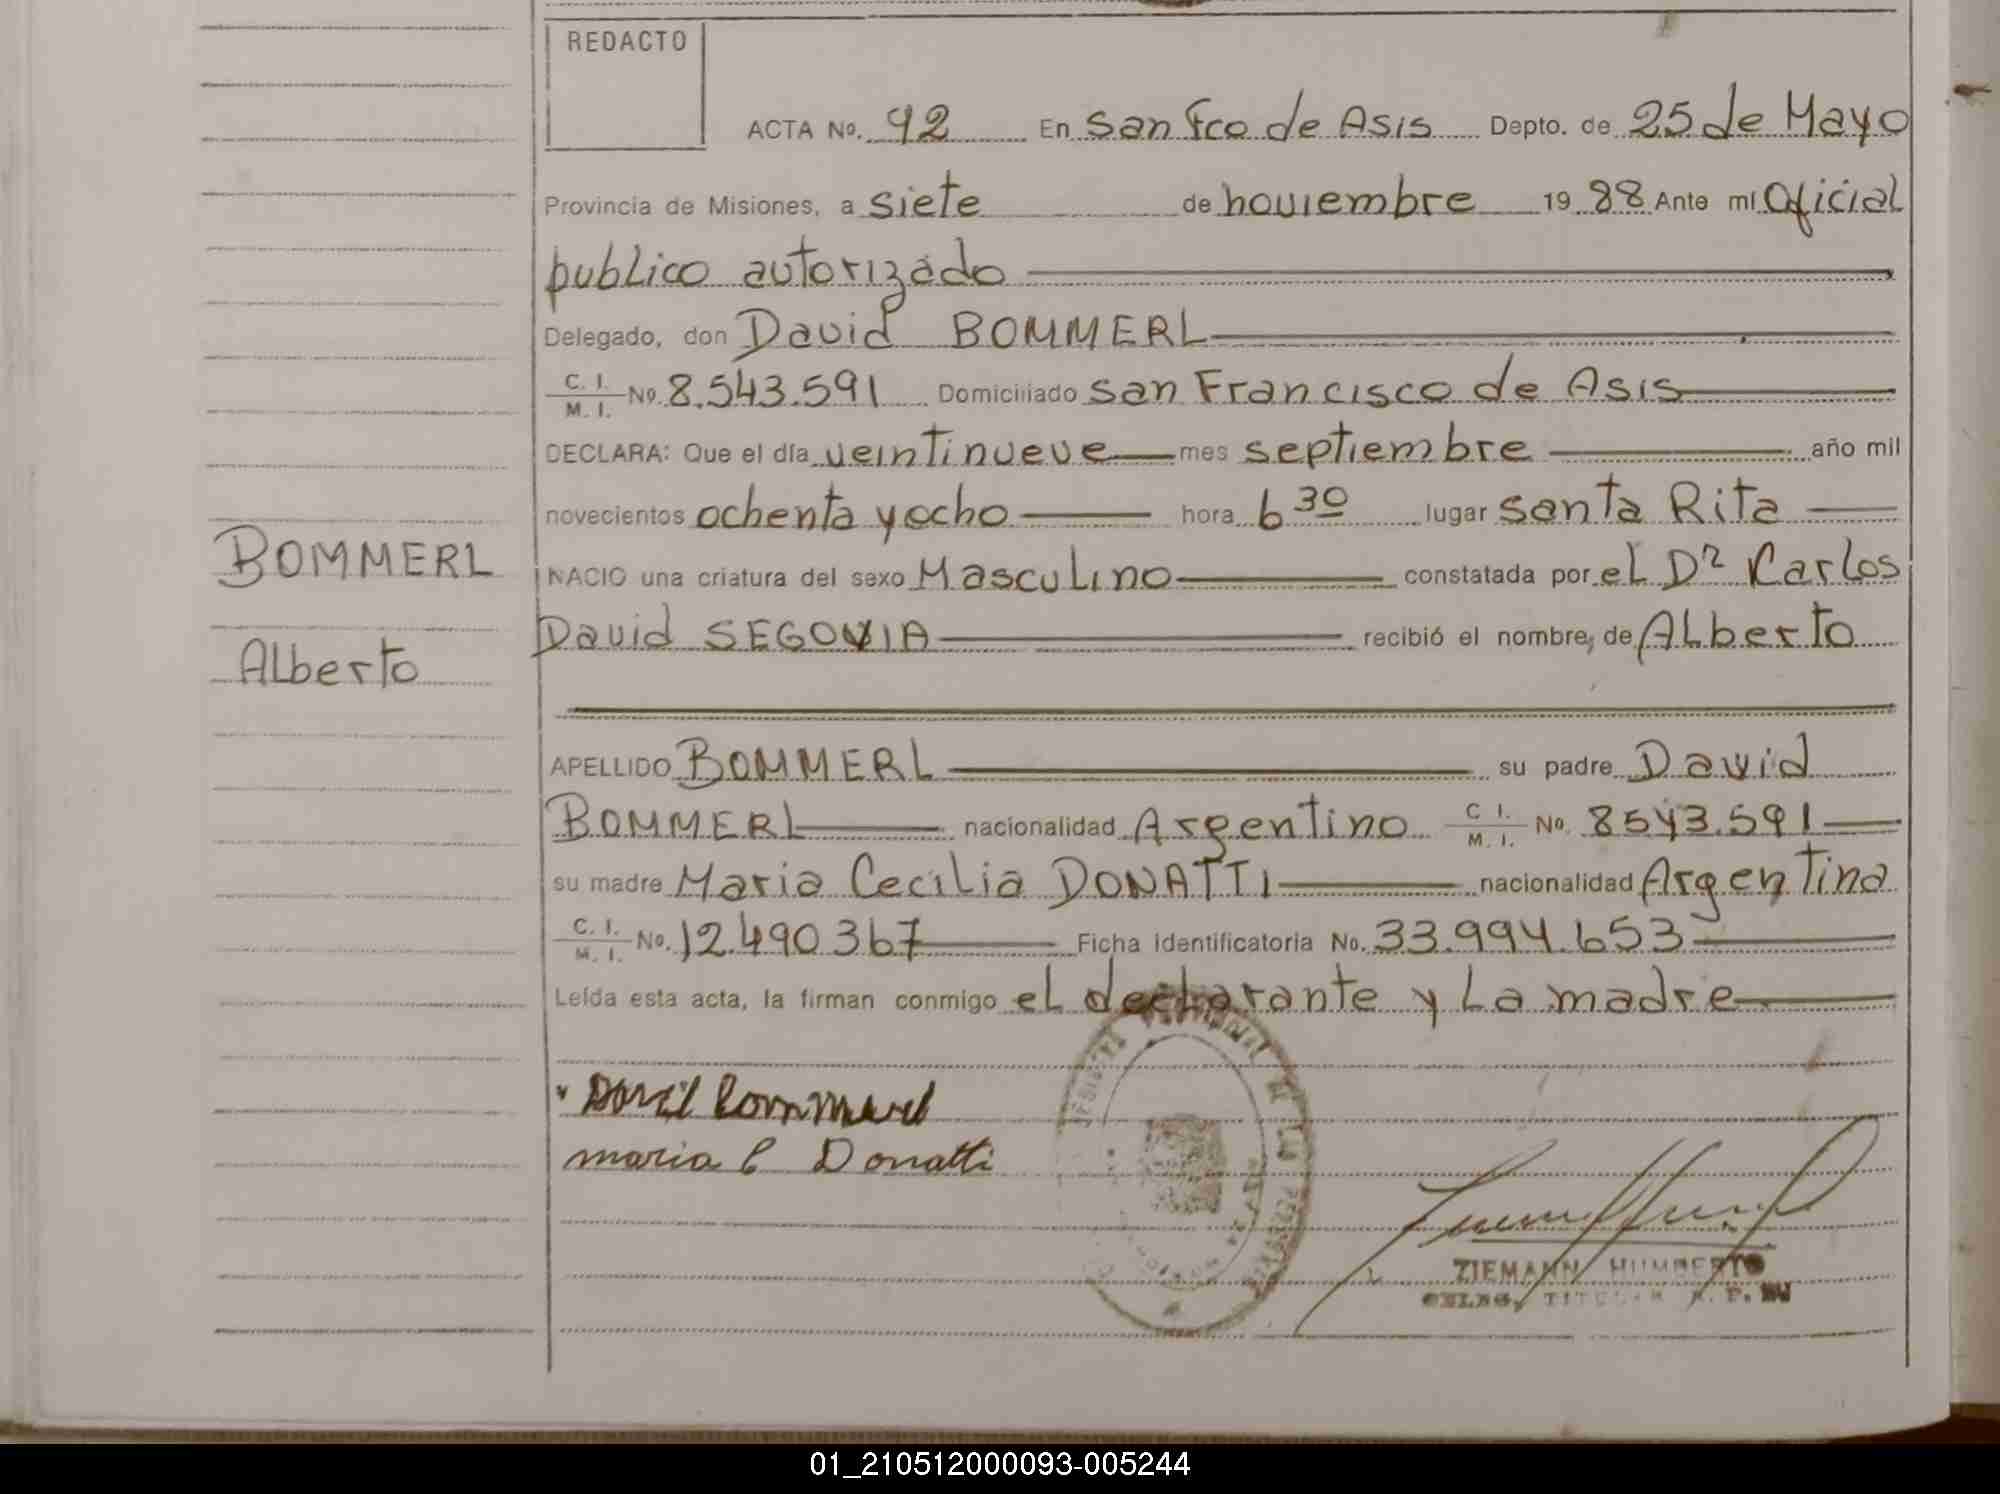 REDACTO
ACTA No. 42 En San Fco de Asis Depto. de 25 de Mayo
Provincia de Misiones, a siete de noviembre 19 88 Ante mi Oficial
publico autorizado
Delegado, don David BOMMERL
C. I. / M. I. No. 8.543.591 Domiciliado San Francisco de Asis
DECLARA: Que el día veintinueve mes septiembre año mil
novecientos ochenta y ocho hora 6 30 lugar Santa Rita
BOMMERL
NACIO una criatura del sexo Masculino constatada por el Dr Carlos
David SEGOVIA recibió el nombre, de Alberto
Alberto
APELLIDO BOMMERL su padre David
BOMMERL nacionalidad Argentino C I. / M. I. No. 8543.591
su madre Maria Cecilia DONATTI nacionalidad Argentina
C. I. / M. I. No. 12.490.367 Ficha identificatoria No. 33.994.653
Leída esta acta, la firman conmigo el declarante y La madre
maria C Donatti
ZIEMANN HUMBERTO
TITULAR
01_210512000093-005244